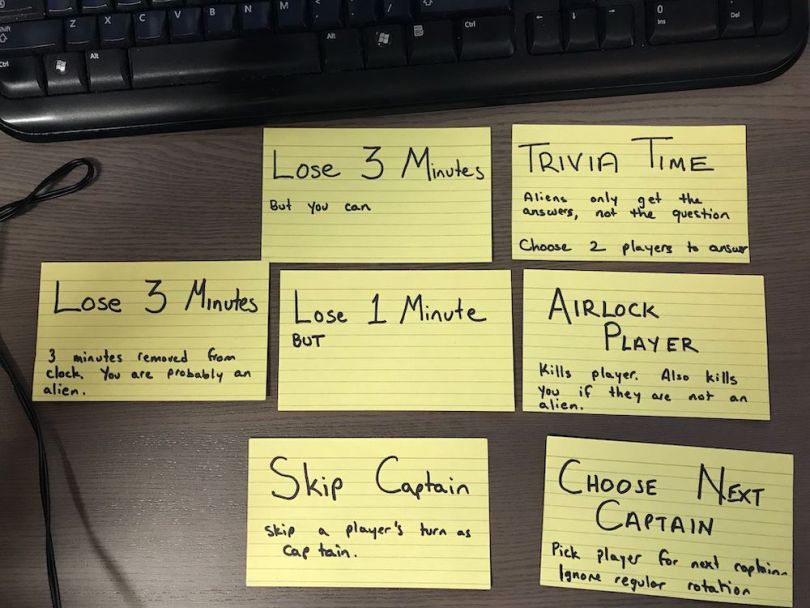 Z X C V B N M < >
Alt Alt Ctrl
0
Ins
.
Del
LOSE 3 MINUTES
BUT YOU CAN
TRIVIA TIME
Aliens only get the
answers, not the question
Choose 2 players to answer
LOSE 3 MINUTES
3 minutes removed from
clock. You are probably an
alien.
LOSE 1 MINUTE
BUT
AIRLOCK
PLAYER
Kills player. Also kills
you if they are not an
alien.
Skip Captain
Skip a player's turn as
captain.
CHOOSE NEXT
CAPTAIN
Pick player for next captain.
Ignore regular rotation